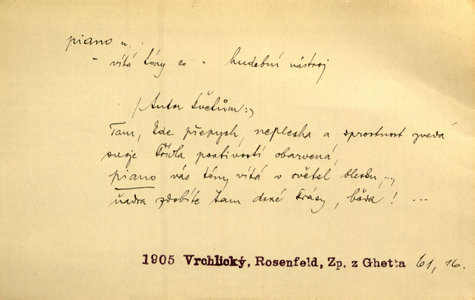 piano n.
- vítá tóny co - hudební nástroj
/Autor světům:/
Tam, kde přepych, neplecha a sprostnost zvedá
svoje křídla poctivostí obarvená,
piano vás tóny vítá v světel blesku, ..,
ňadra zdobíte tam dané krásy, běda! ...
1905 Vrchlický, Rosenfeld, Zp. z Ghetta 61, 16.